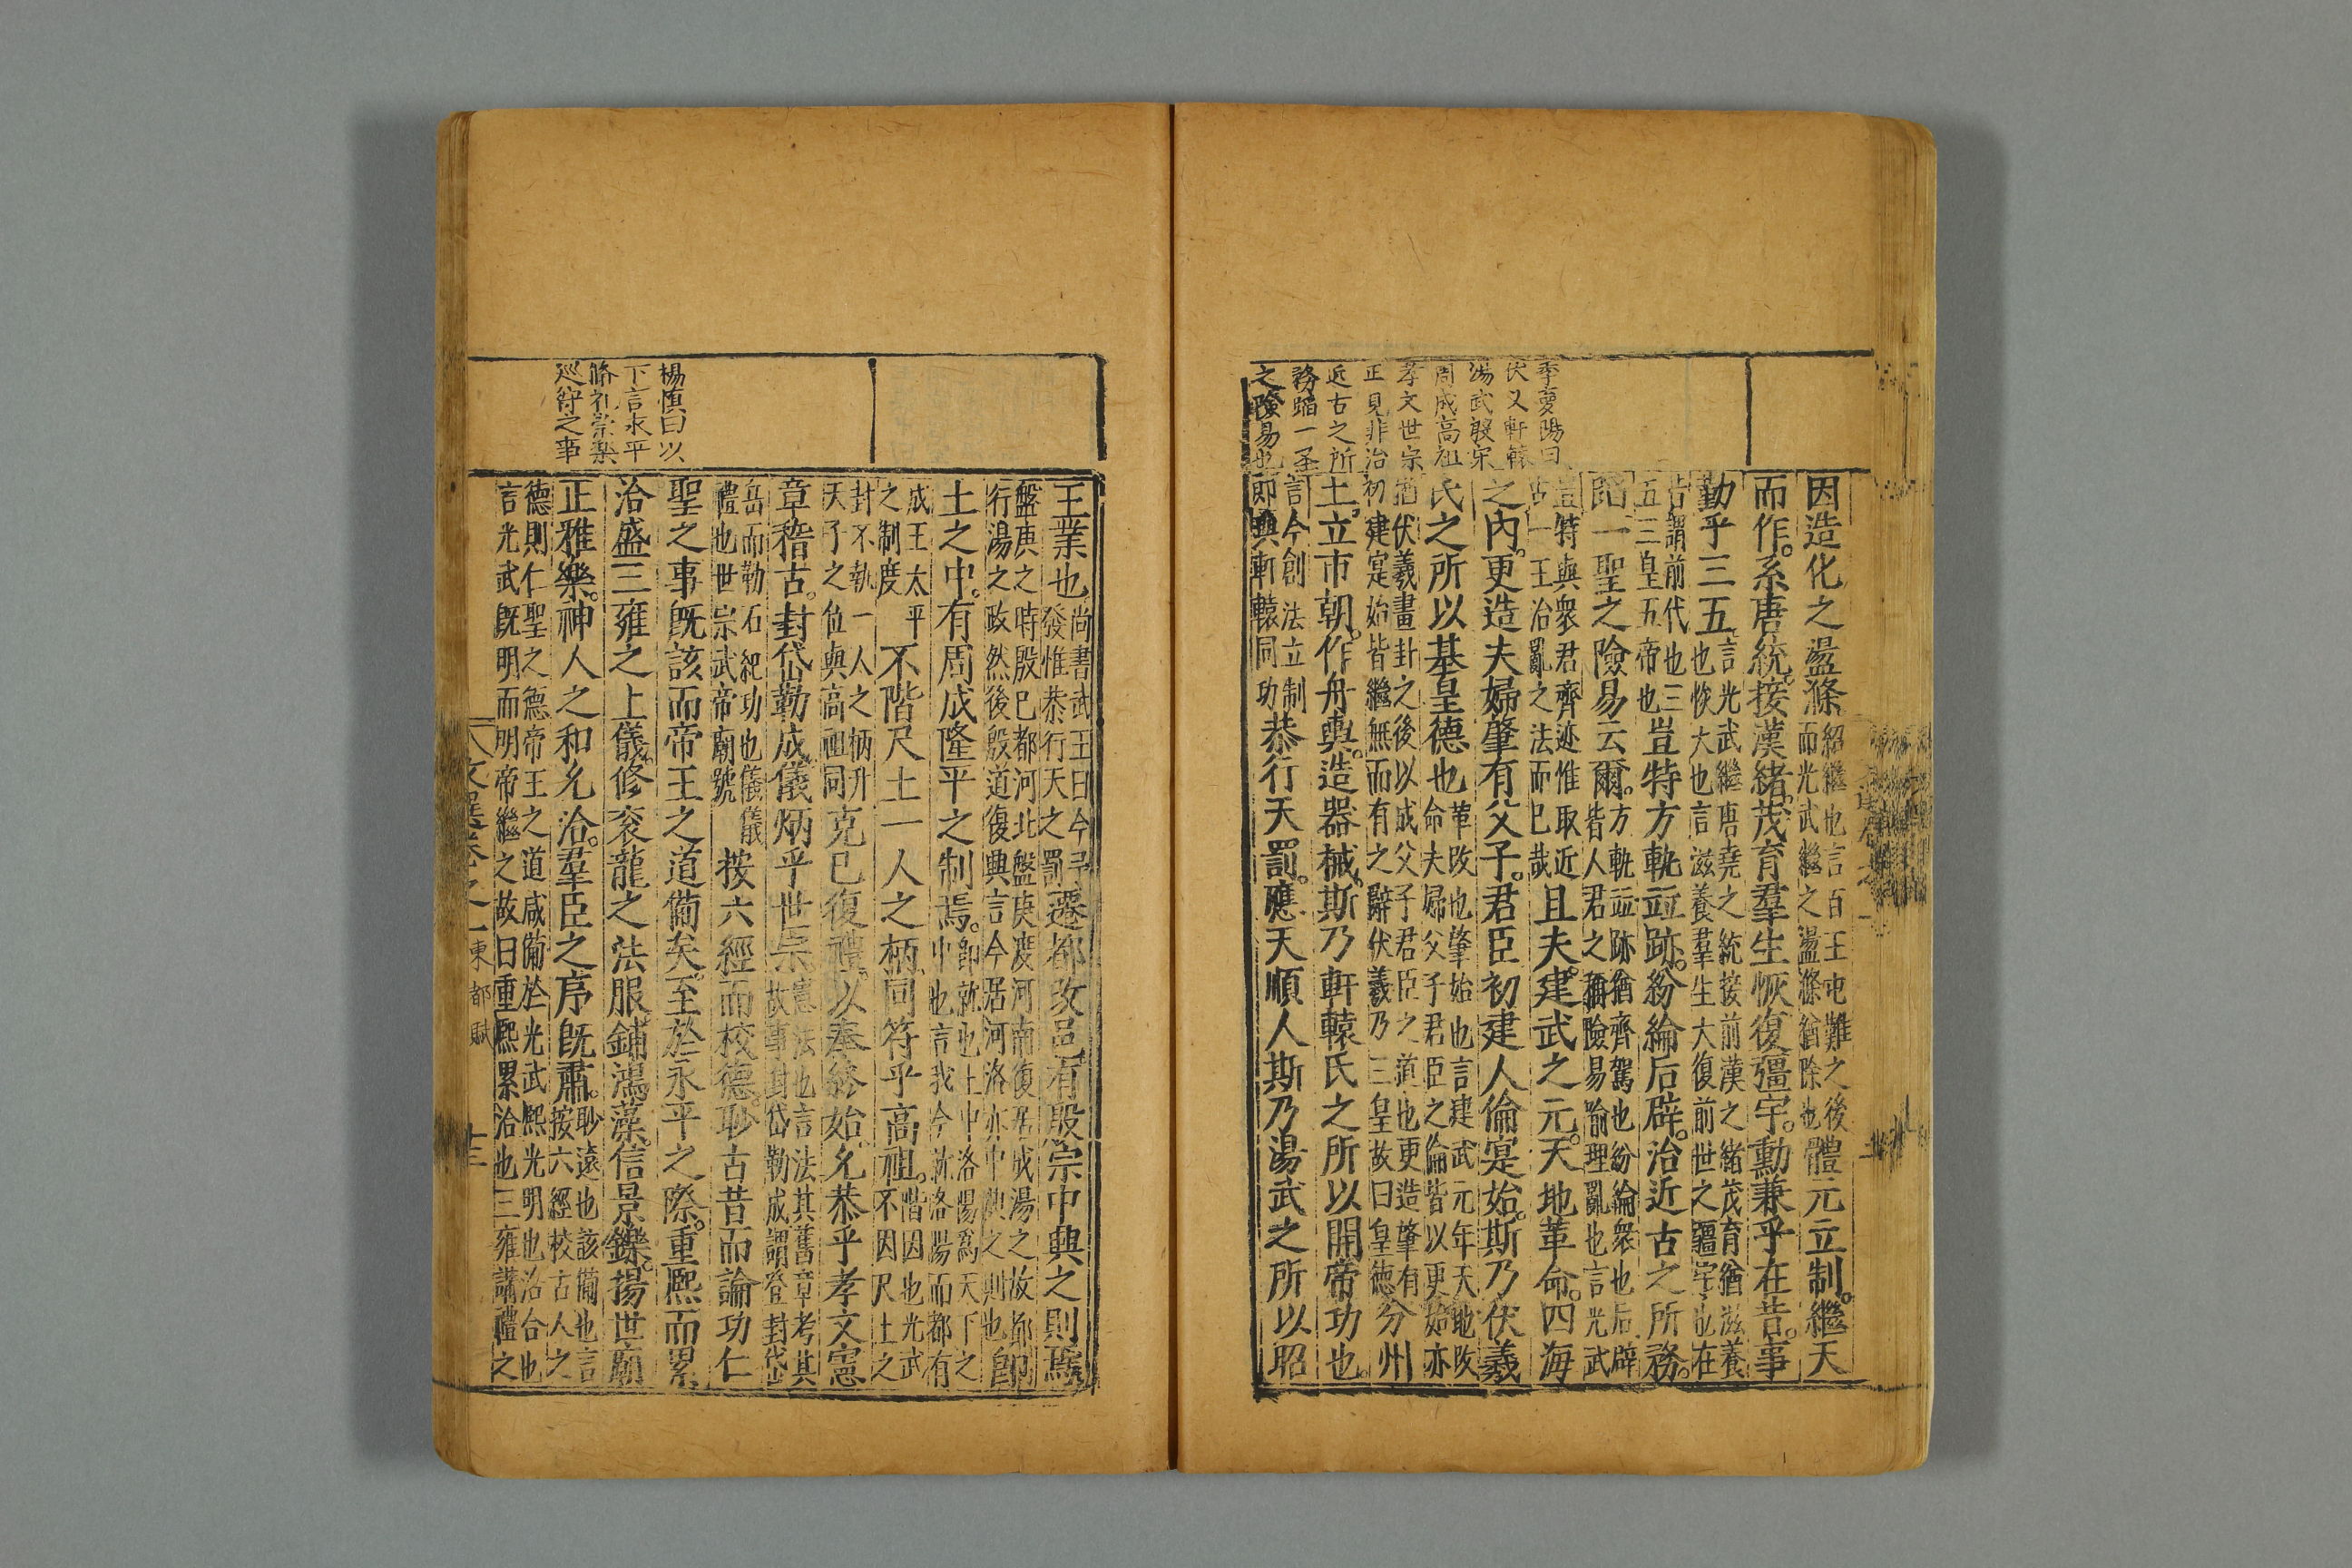 李夢陽曰
伏又軒轅
湯武殷宗
周成高祖
孝文世宗
正見非治
近古之所
務蹈一圣
之險易也
因造化之盪滌紹繼也言百王屯難之後而光武繼之盪滌猶除也體元立制。繼天
而作。系唐統。接漢緒。茂育羣生恢復疆宇。勳兼乎在昔。事
勤乎三五言光武繼唐堯之統接前漢之緒茂育猶滋養也恢大也言滋養羣生大復前世之疆宇也在
昔謂前代也三五三皇五帝也豈特方軌竝跡。紛綸后辟。治近古之所務。
蹈一聖之險易云爾。方軌竝跡猶齊駕也紛綸衆也后辟皆人君之稱險易喻理亂也言光武
豈特與衆君齊迹惟取近古一王治亂之法而已哉且夫。建武之元。天地革命。四海
之內。更造夫婦肇有父子。君臣初建人倫寔始。斯乃伏羲
氏之所以基皇德也革改也肇始也言建武元年天地改命夫婦父子君臣之倫皆以更始亦
猶伏羲畫卦之後以成父子君臣之道也更造肇有初建寔始皆繼無而有之辭伏羲乃三皇故曰皇德分州
土。立市朝。作舟輿。造器械。斯乃軒轅氏之所以開帝功也。
言今創法立制即與軒轅同功恭行天罰。應天順人斯乃湯武之所以昭
楊慎曰以
下言永平
脩礼崇樂
巡狩之事
王業也尚書武王曰今予發惟恭行天之罰遷都改邑有殷宗中興之則焉
盤庚之時殷已都河北盤庚度河南復居成湯之故都卽行湯之政然後殷道復興言今居河洛亦中興之則也卽
土之中。有周成隆平之制焉。卽就也土中洛陽爲天下之中也言我今就洛陽而都有
成王太平之制度不階尺土一人之柄同符乎高祖。階因也光武不因尺土之
封不執一人之柄升天子之位與高祖同克己復禮以奉終始允恭乎孝文憲
章稽古。封岱勒成儀炳乎世宗憲法也言法其舊章考其故事封岱勒成謂登封岱
岳而勒石紀功也儀儀禮也世宗武帝廟號按六經而校德。眇古昔而論功仁
聖之事旣該而帝王之道備矣。至於永平之際。重熙而累
洽盛三雍之上儀。修袞龍之法服鋪鴻藻。信景鑠。揚世廟
正雅樂。神人之和允洽。羣臣之序旣肅。眇遠也該備也言按六經校古人之
德則仁聖之德帝王之道咸備於光武熙光明也洽合也言光武旣明而明帝繼之故曰重熙累洽也三雍講禮之
文選卷之一 東都賦 十三